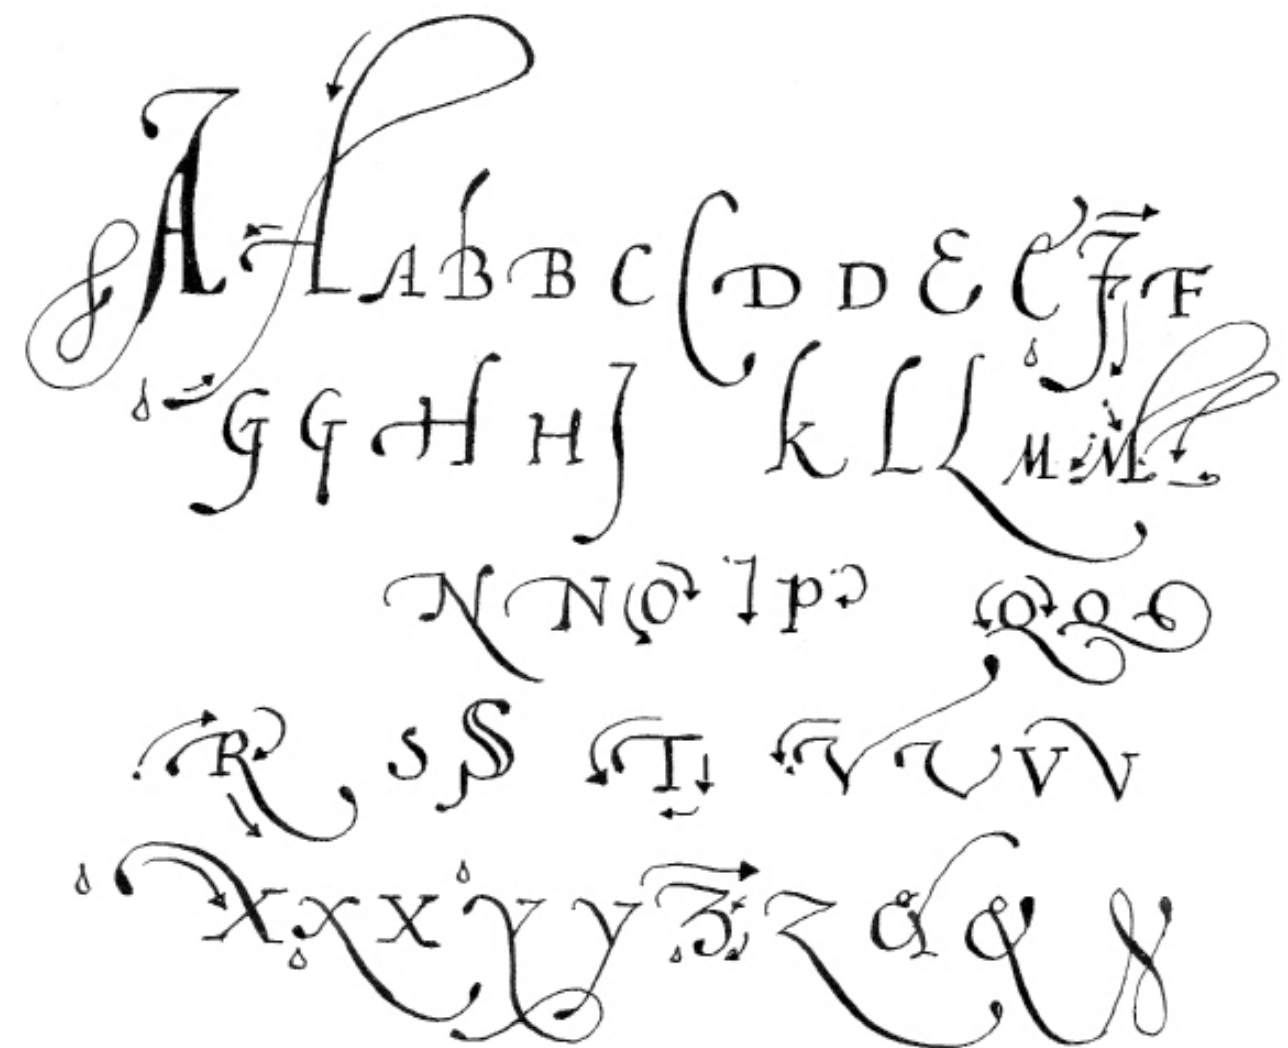 A A A B B C C D D E E F F
G G H H J K L L M M
N N O I P Q Q Q
R S S T V V V V
X X X Y Y Z Z & & &